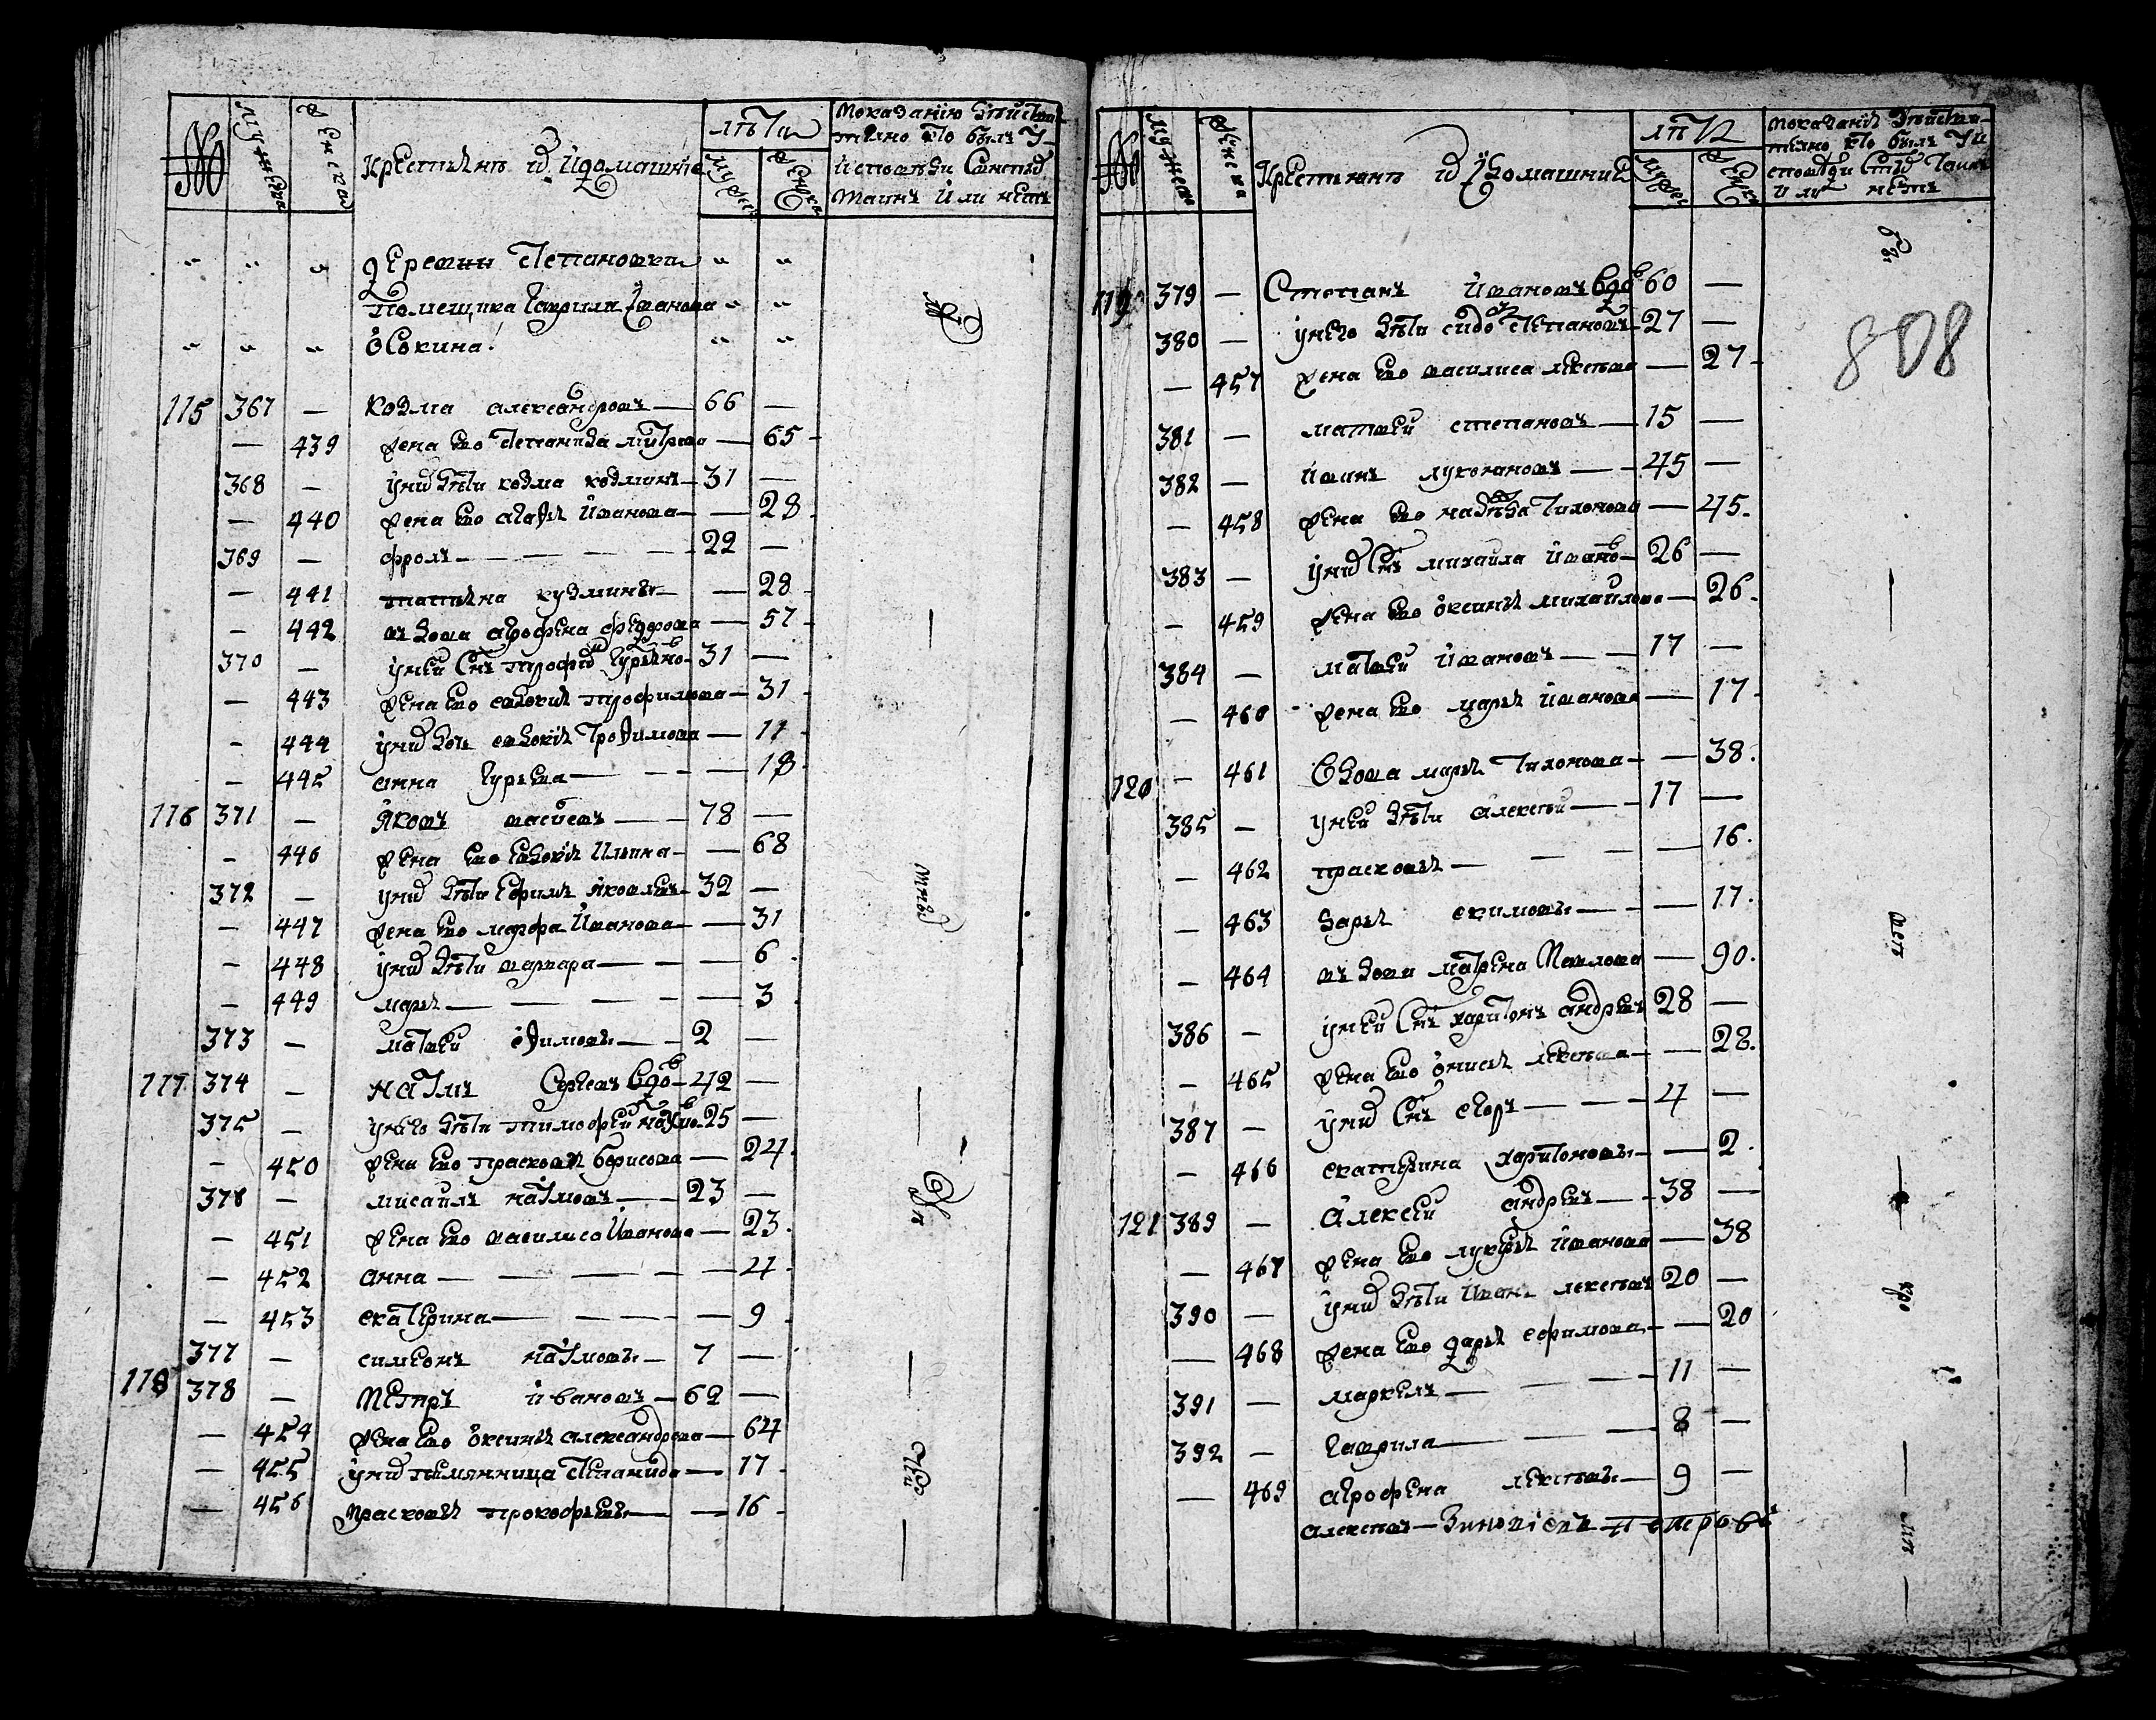 № мужеска женска крестьянъ и домашние лѣты мужес женска показанию действи
телно кто былъ у
исповѣди святыхъ
таинъ или нетъ
деревни степановки
помещика гаврила иванова
осокина
115 367 — козма александровъ — 66 —
— 439 жена ево степанида митрева — 65
368 — у них дѣти козма козминъ — 31 —
— 440 жена ево агафя иванова — 28
369 — фролъ — 22 —
— 441 татьяна кузмина — 28
— 442 вдова агрофена федорова — 57
370 — у ней снъ трофим гурьяно — 31 —
— 443 жена ево евдокия трофимова — 31
— 444 у них дочь евдокия трофимова — 11
— 445 анна гурьева — 18
116 371 — яковъ — 78 —
— 446 жена ево евдокия ильина — 68
372 — у них дѣти ефимъ яковлевъ — 32 —
— 447 жена ево марфа иванова — 31
— 448 у них дѣти варвара — 6
— 449 марья — 3
373 — матвей ефимовъ — 2 —
117 374 — наумъ сергеевъ вдовъ — 42 —
375 — у него дѣти тимофей наумо — 25 —
— 450 жена ево прасковя борисова — 24
376 — мисаилъ наумовъ — 23 —
— 451 жена ево василиса иванова — 23
— 452 анна — 4
— 453 екатерина — 9
377 — симеонъ наумовъ — 7 —
118 378 — петръ ивановъ — 69 —
— 454 жена ево оксиня александрова — 64
— 455 у них племянница степанида — 17
— 456 прасковя прокофьевъ — 16
№ мужеска женска крестьянъ и домашние лѣты мужес женска показание действи
телно кто былъ у и
споведи стыхъ таинъ
или нетъ
808
119 379 — степанъ ивановъ вдовъ 60 —
380 — у него дѣти сидо степановъ — 27 —
— 457 жена ево василиса лексѣева — 27
381 — матвей степановъ — 15 —
382 — иванъ лукояновъ — 45 —
— 458 жена ево надѣжда тихонова — 45
383 — у них снъ михаила ивано — 26 —
— 459 жена ево оксиня михайлова — 26
384 — матвей ивановъ — 17 —
— 460 жена ево марья иванова — 17
120 — 461 вдова марья тихонова — 38
385 — у ней дѣти алексѣй — 17 —
— 462 прасковя — 16
— 463 дарья екимовъ — 17
— 464 вдова матрена павлова — 90
386 — у ней снъ харитонъ андревъ 28 —
— 465 жена ево онися лексѣева — 28
387 — у них снъ егоръ — 4 —
— 466 екатерина харитоновъ — 2
121 389 — алексей андревъ — 38 —
— 467 жена ево лукерья иванова — 38
390 — у них дѣти иванъ лексѣевъ 20 —
— 468 жена ево дарья ефимова — 20
391 — маркелъ — 11 —
392 — гаврила — 8 —
— 469 агрофена лексѣевъ — 9 —
алексѣевъ — Зиновiевъ